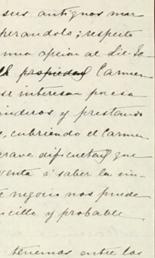 sus antiguos mar
perandola; respeto
una opcion de
propiedad Carmen
se interesan para
inderos y prestando
e, cubriendo el Carmen
grave dificultad que
venta á saber la
negocio nos puede
ncillo y probable
tenemos entre los